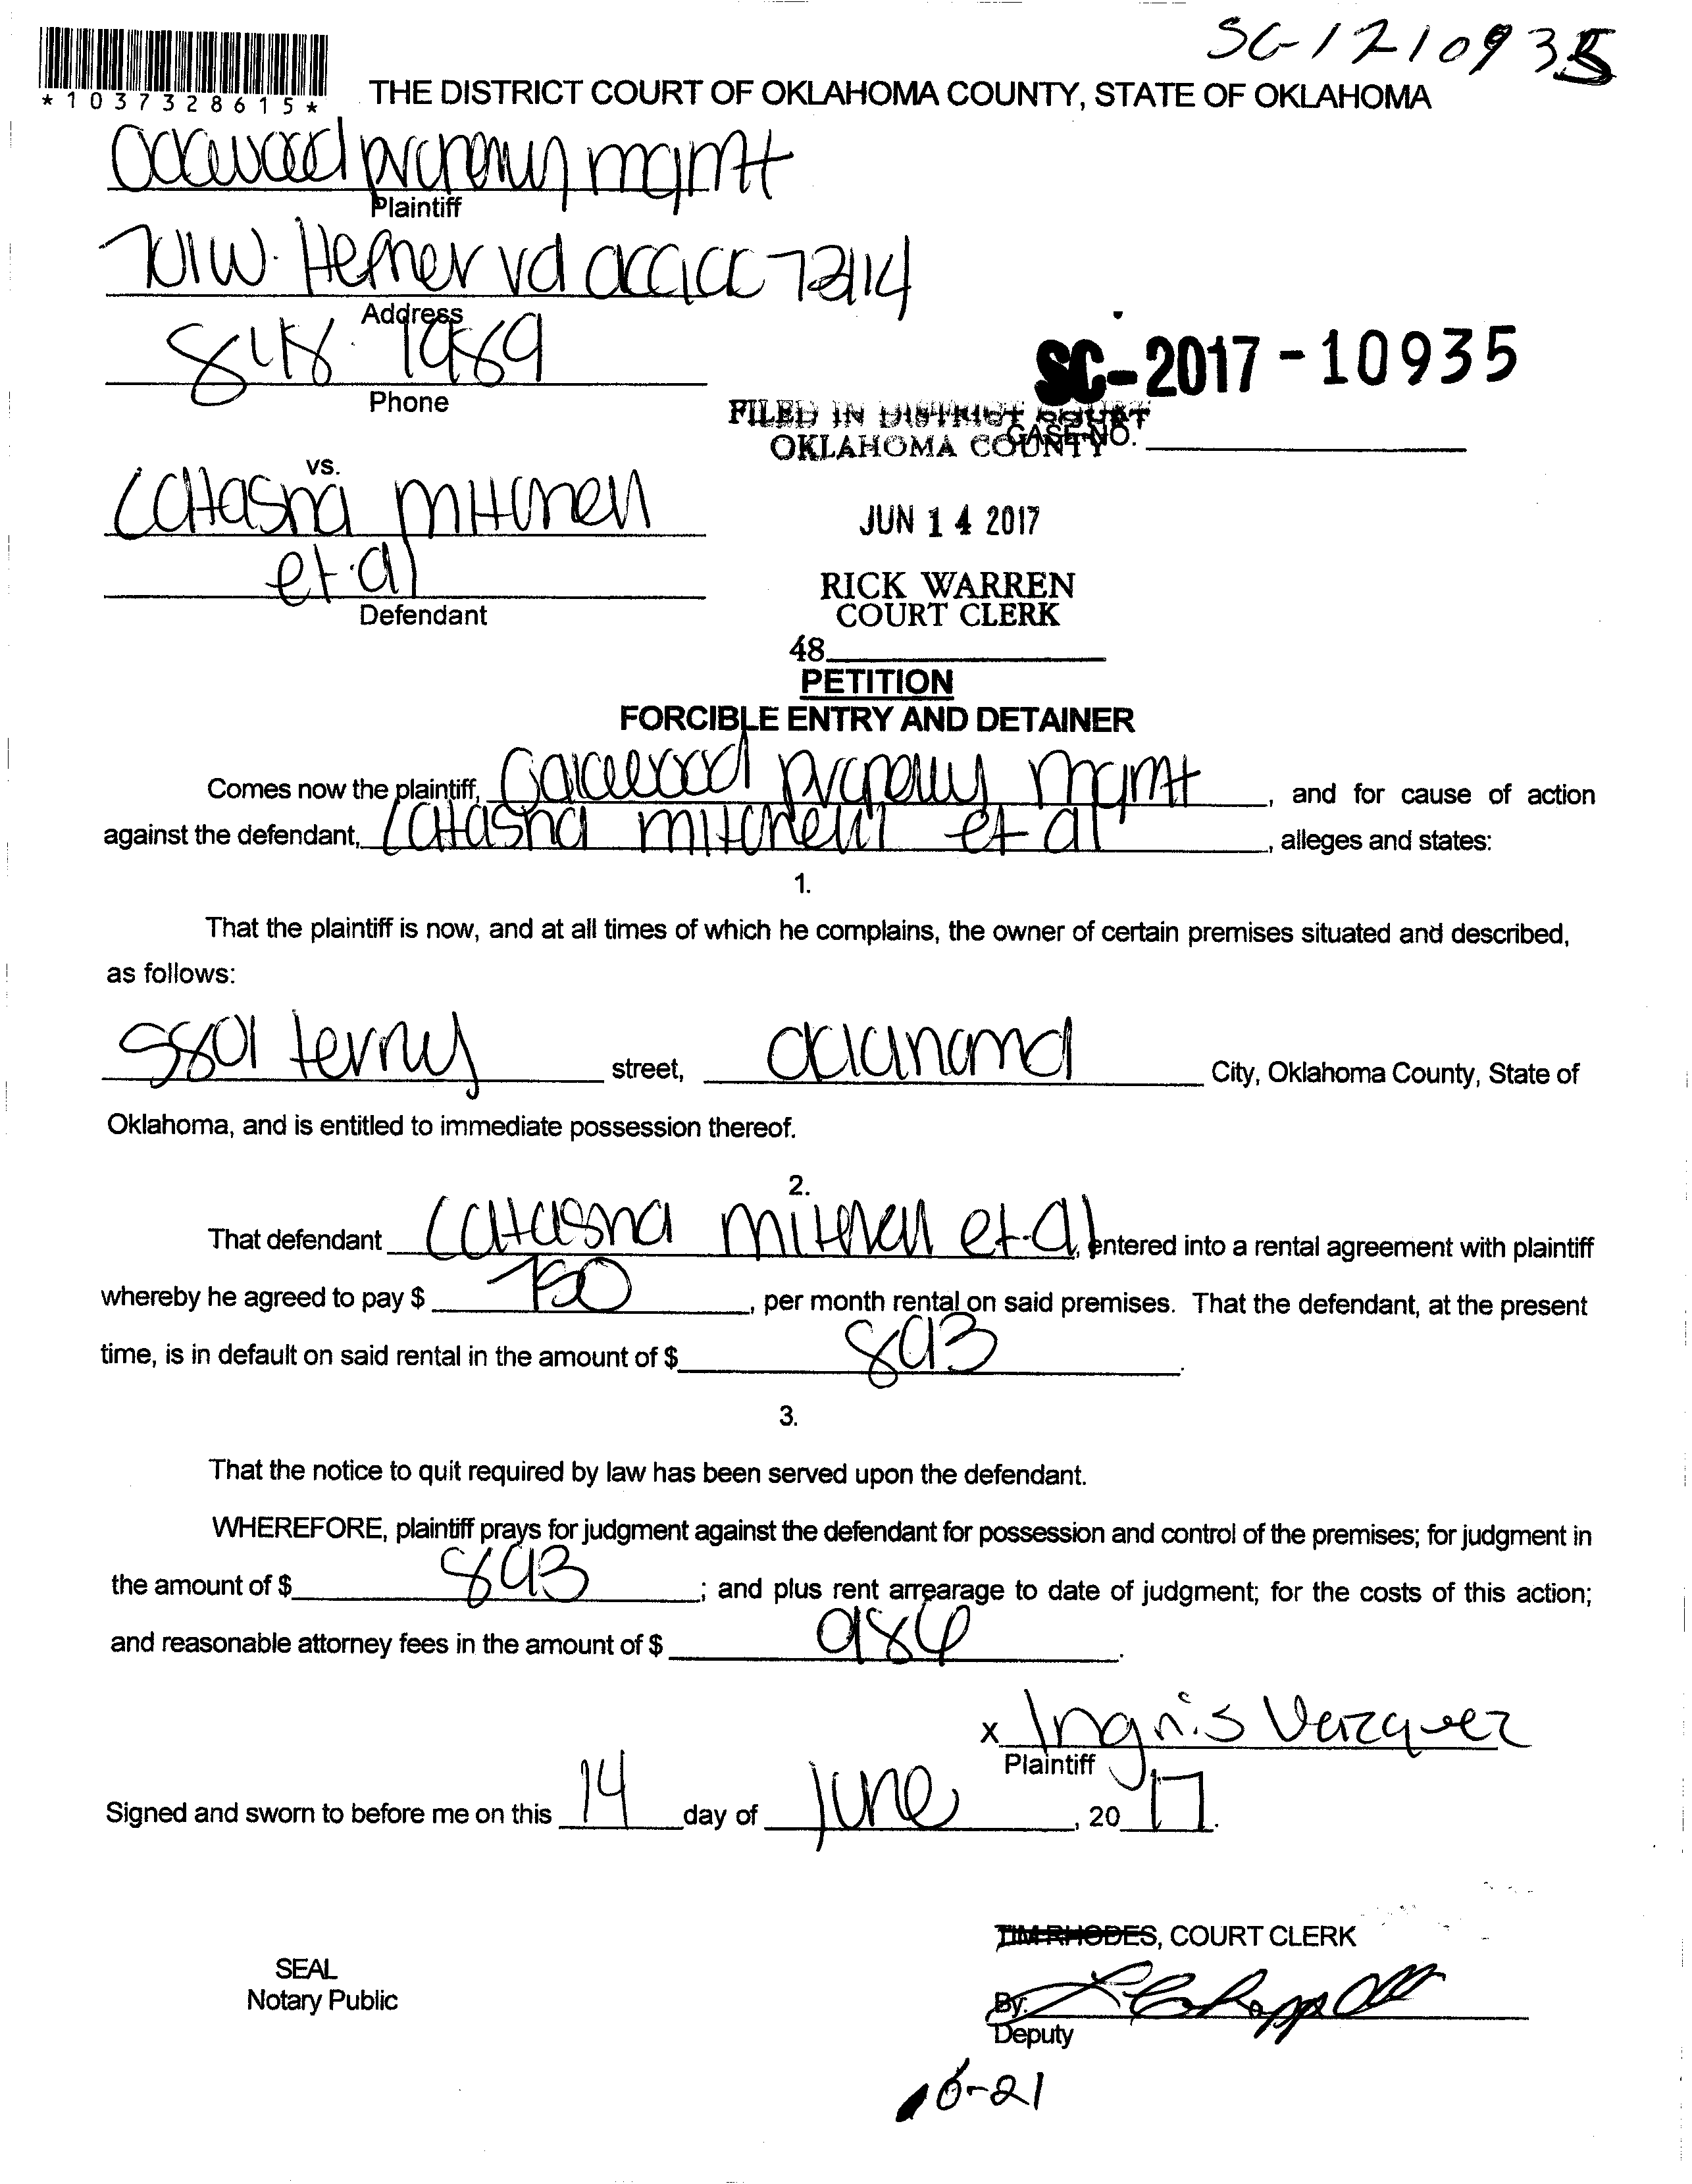 SC-17 10935
*1037328615*
THE DISTRICT COURT OF OKLAHOMA COUNTY, STATE OF OKLAHOMA
mgmt
Plaintiff
W. Hefner rd
Address
848 1989
Phone
SC-2017-10935
FILED IN DISTRICT COURT
OKLAHOMA COUNTY
CASE NO.
vs.
Latasha Mitchell
et al
Defendant
JUN 14 2017
RICK WARREN
COURT CLERK
48
PETITION
FORCIBLE ENTRY AND DETAINER
Comes now the plaintiff, Oakwood property mgmt, and for cause of action
against the defendant, Latasha Mitchell et al, alleges and states:
1.
That the plaintiff is now, and at all times of which he complains, the owner of certain premises situated and described,
as follows:
street, City, Oklahoma County, State of
Oklahoma, and is entitled to immediate possession thereof.
2.
That defendant Latasha Mitchell et al, entered into a rental agreement with plaintiff
whereby he agreed to pay $ 750, per month rental on said premises. That the defendant, at the present
time, is in default on said rental in the amount of $ 893.
3.
That the notice to quit required by law has been served upon the defendant.
WHEREFORE, plaintiff prays for judgment against the defendant for possession and control of the premises; for judgment in
the amount of $ 893; and plus rent arrearage to date of judgment; for the costs of this action;
and reasonable attorney fees in the amount of $.
x Ingris Vazquez
Plaintiff
Signed and sworn to before me on this 14 day of June, 2017.
TIM RHODES, COURT CLERK
SEAL
Notary Public
By:
Deputy
6-21